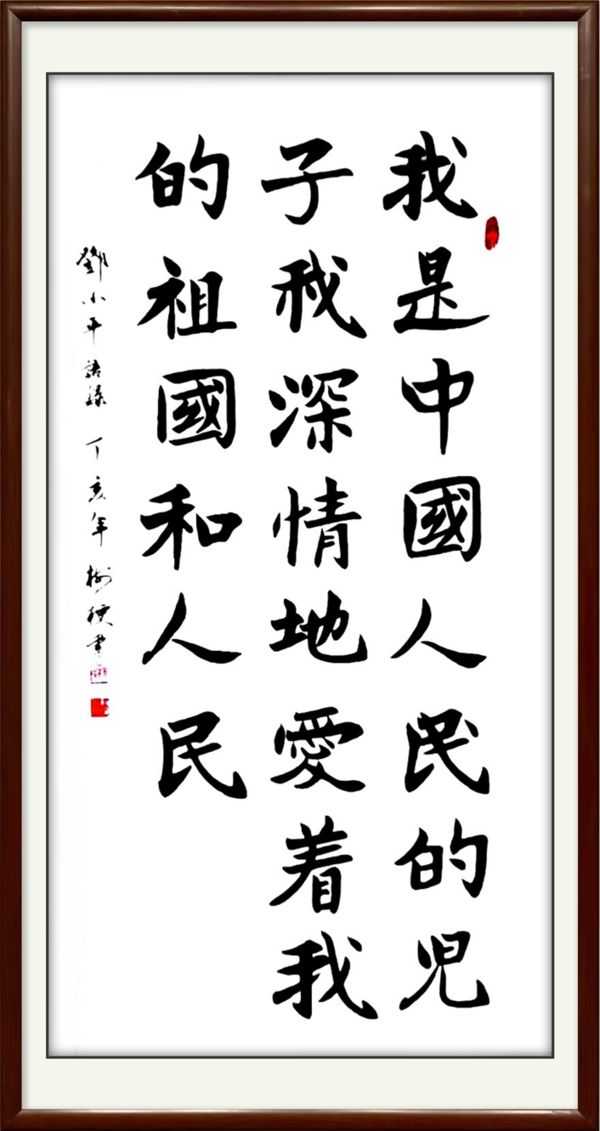 我是中國人民的児
子我深情地愛着我
的祖國和人民
鄧小平語錄 丁亥年 樹 書